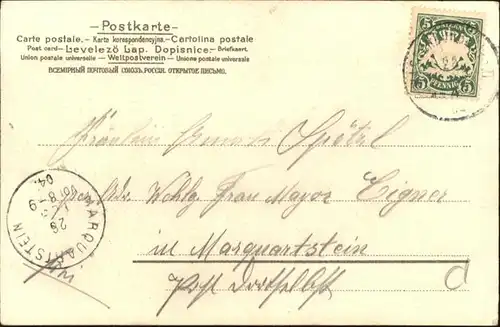 Postkarte
Carte postale. — Karta korespondencyjna. — Cartolina postale
Post card — Levelező Lap. Dopisnice. — Briefkaart.
Union postale universelle — Weltpostverein — Unione postale universale
ВСЕМІРНЫЙ ПОЧТОВЫЙ СОЮЗЪ. РОССІЯ. ОТКРЫТОЕ ПИСЬМО.
5 5
5 PFENNIG 5
Fräulein
Frau Major Eigner
in Marquartstein
Post
MARQUARTSTEIN
28
8-9
04.